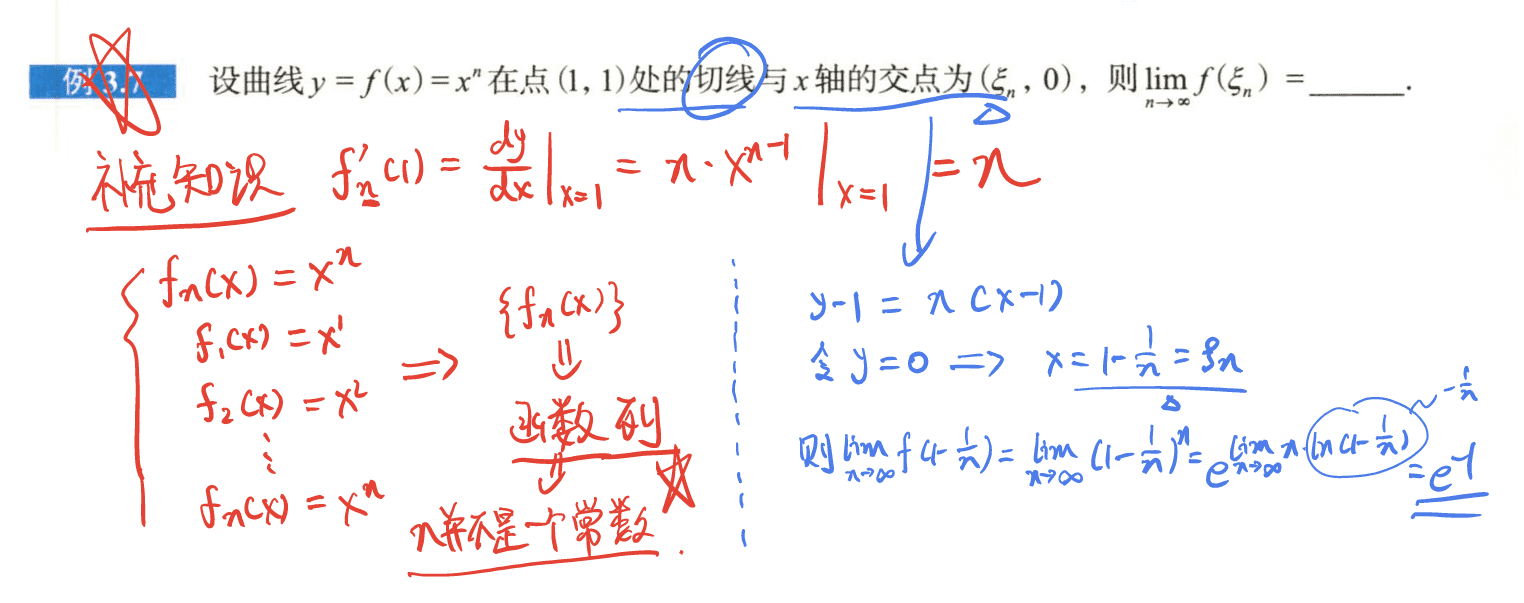 例3.7 设曲线 y = f(x) = xⁿ 在点 (1, 1) 处的切线与 x 轴的交点为 (ξₙ, 0), 则 lim_{n→∞} f(ξₙ) = ______.
补充知识 fₙ'(1) = dy/dx |ₓ₌₁ = n·xⁿ⁻¹ |ₓ₌₁ = n
fₙ(x) = xⁿ
f₁(x) = x¹
f₂(x) = x²
⋮
fₙ(x) = xⁿ
⇒ {fₙ(x)}
⇓
函数列
⇓
n并不是一个常数.
y-1 = n(x-1)
令 y=0 ⇒ x = 1-1/n = ξₙ
则 lim_{n→∞} f(1-1/n) = lim_{n→∞} (1-1/n)ⁿ = e^{lim_{n→∞} n·ln(1-1/n)} = e⁻¹
~ -1/n